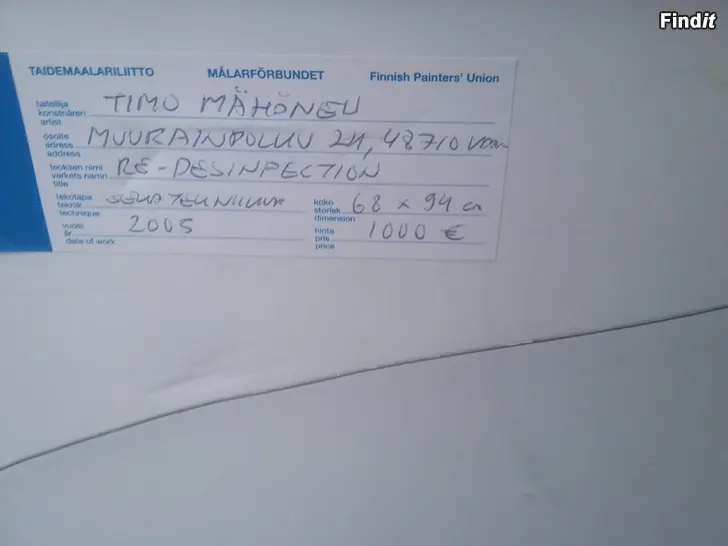 Findit
TAIDEMAALARILIITTO MÅLARFÖRBUNDET Finnish Painters' Union
taiteilija
konstnären
artist
TIMO MÄHÖNEN
osoite
adress
address
MUURAINPOLKU 2H, 48710
teoksen nimi
verkets namn
title
RE-DESINPECTION
tekotapa
teknik
technique
SEKATEKNIIKKA
koko
storlek
dimension
68 x 94 cm
vuosi
år
date of work
2005
hinta
pris
price
1000 €